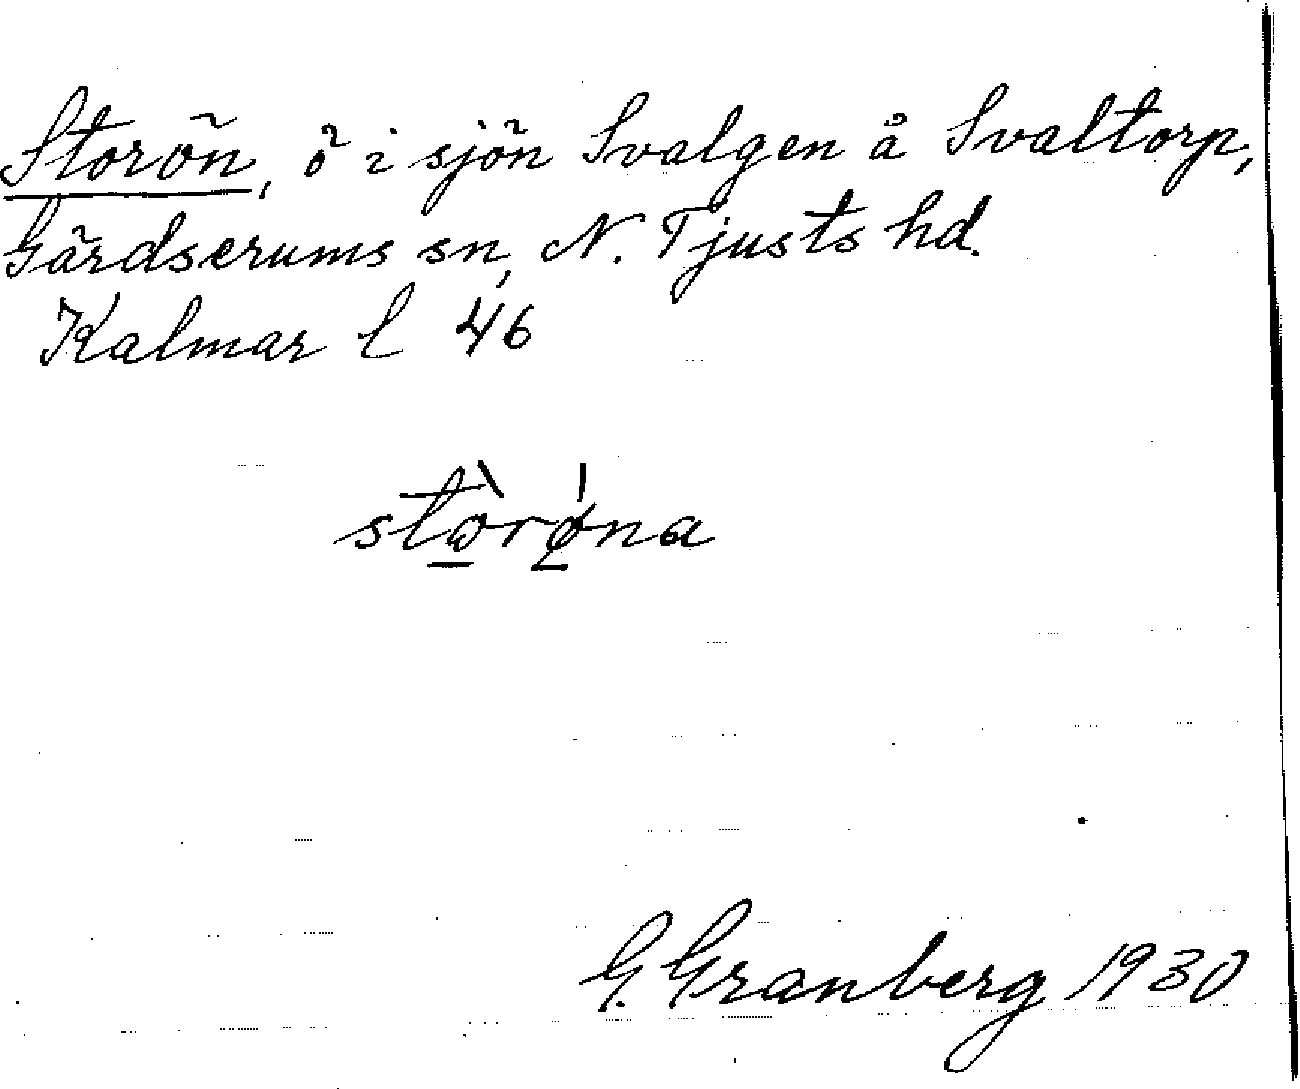 Storön, ö i sjön Svalgen å Svaltorp,
Gärdserums sn, N. Tjusts hd.
Kalmar l 46
stòrǿna
G. Granberg 1930